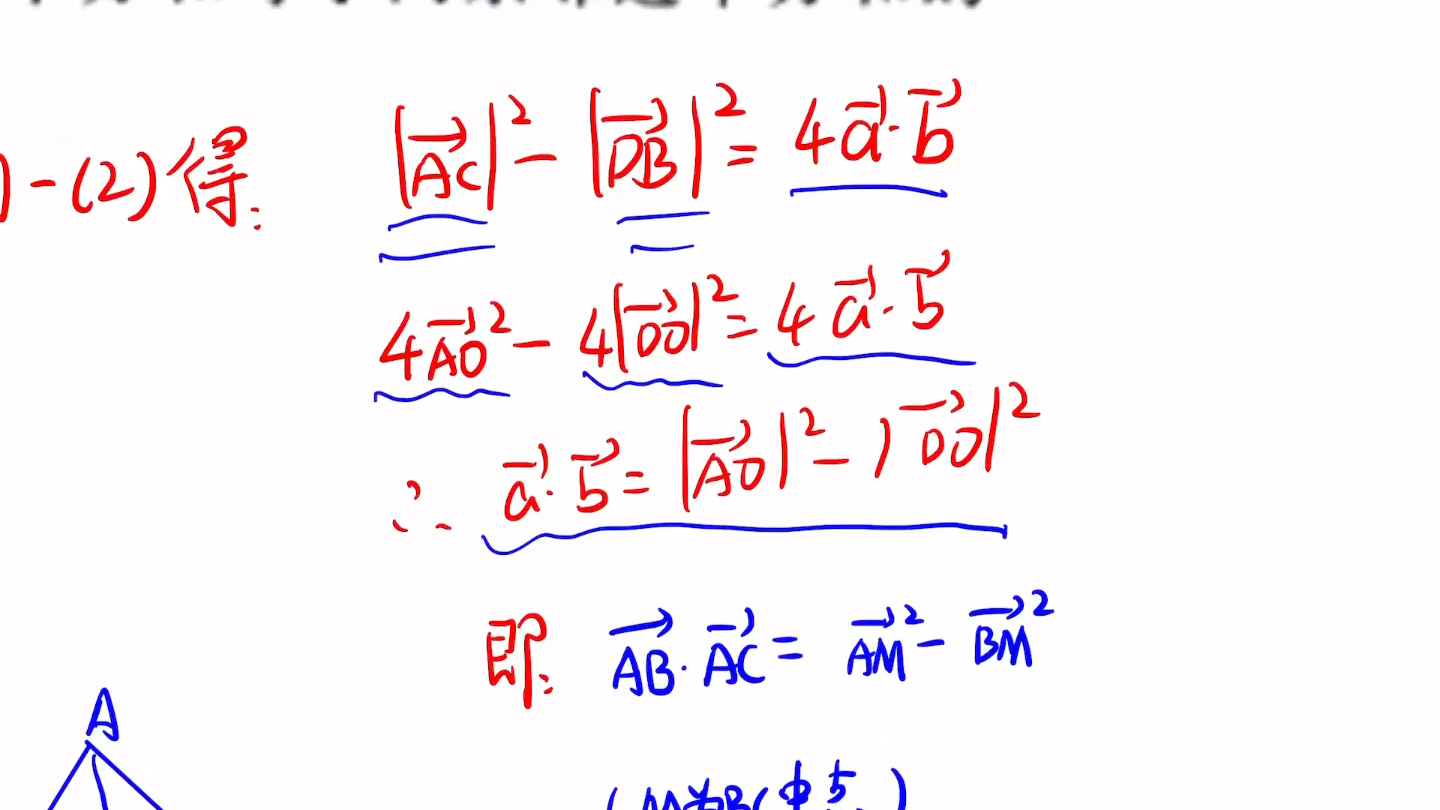 )-(2)得: |\overrightarrow{AC}|^2 - |\overrightarrow{DB}|^2 = 4\vec{a}·\vec{b}
4\overrightarrow{AO}^2 - 4|\overrightarrow{DO}|^2 = 4\vec{a}·\vec{b}
∴ \vec{a}·\vec{b} = |\overrightarrow{AO}|^2 - |\overrightarrow{DO}|^2
即: \overrightarrow{AB}·\overrightarrow{AC} = \overrightarrow{AM}^2 - \overrightarrow{BM}^2
A
(M为BC中点)